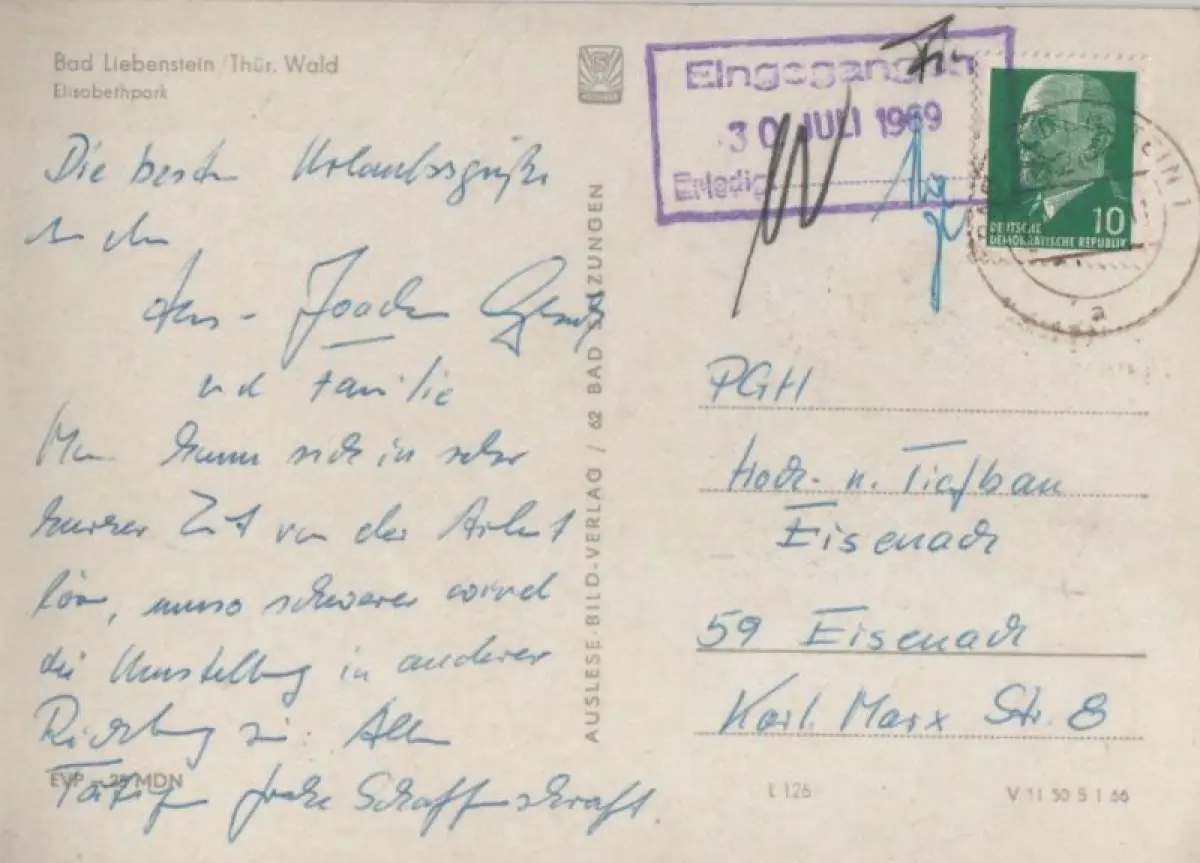 Bad Liebenstein/Thür. Wald
Elisabethpark
Die besten Urlaubsgrüße
an den
Joachim
und Familie
Man kann sich in sehr
kurzer Zeit von der Arbeit
umso schwerer wird
die Umstellung in anderer
Richtung sein. Allen
Tätigen frohe Schaffenskraft.
EVP MDN
AUSLESE-BILD-VERLAG / 62 BAD SALZUNGEN
Eingegangen
30. JULI 1969
Erledigt
DEUTSCHE
DEMOKRATISCHE REPUBLIK
10
PGH
Hoch- u. Tiefbau
Eisenach
59 Eisenach
Karl Marx Str. 8
L 126
V 11 50 S 1 66